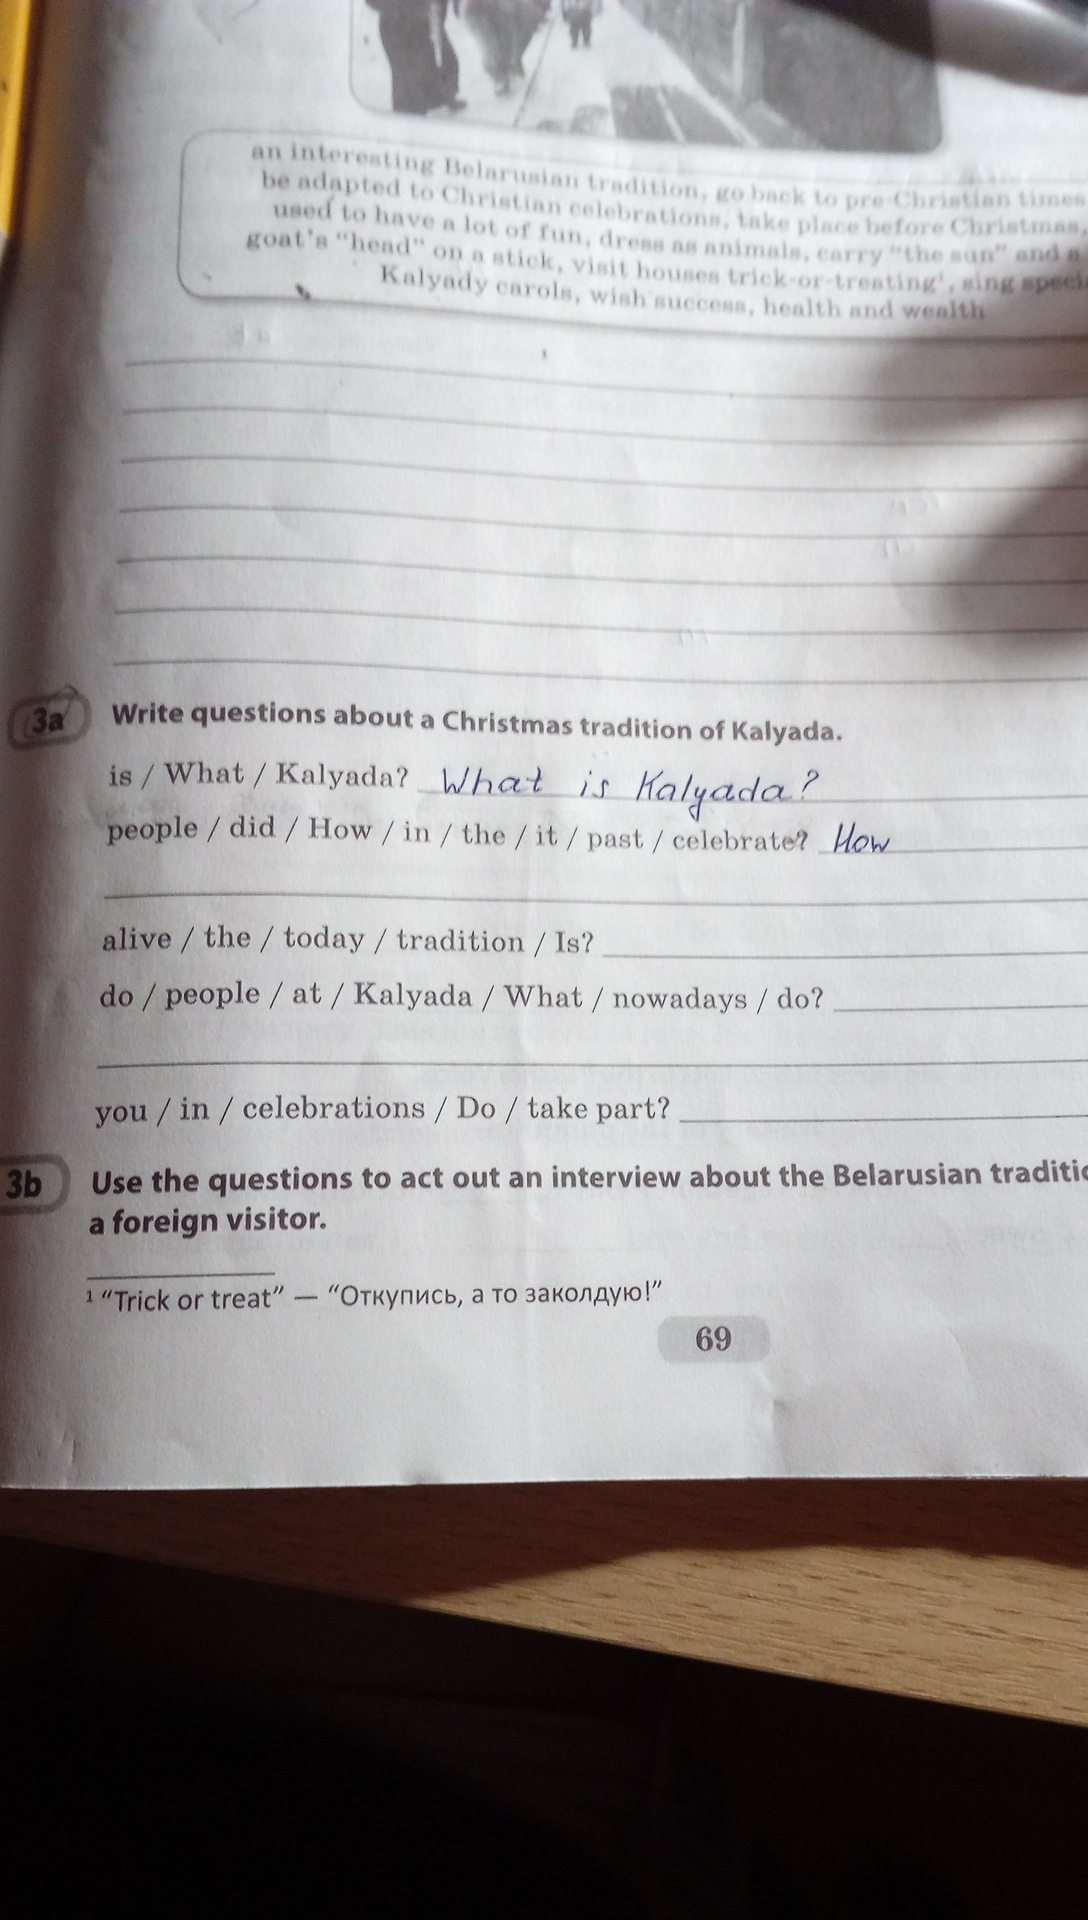 an interesting Belarusian tradition, go back to pre-Christian times
be adapted to Christian celebrations, take place before Christmas,
used to have a lot of fun, dress as animals, carry "the sun" and a
goat's "head" on a stick, visit houses trick-or-treating¹, sing
Kalyady carols, wish success, health and wealth
3a Write questions about a Christmas tradition of Kalyada.
is / What / Kalyada? What is Kalyada?
people / did / How / in / the / it / past / celebrate? How
alive / the / today / tradition / Is?
do / people / at / Kalyada / What / nowadays / do?
you / in / celebrations / Do / take part?
3b Use the questions to act out an interview about the Belarusian
a foreign visitor.
¹ "Trick or treat" — "Откупись, а то заколдую!"
69